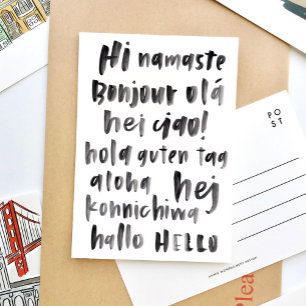 Hi namaste
Bonjour olá
hei ciao!
hola guten tag
aloha hej
konnichiwa
hallo HELLO
POST
Plea